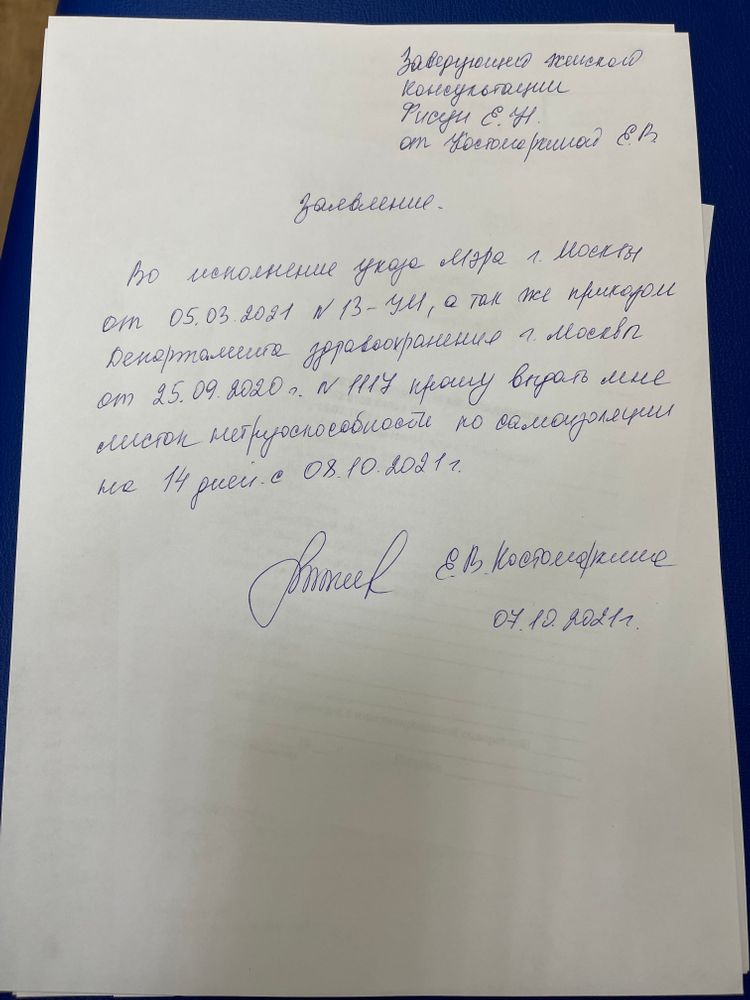 Заведующей женской
консультации
Фисун Е.Н.
от Костомаркиной Е.В.
Заявление.
Во исполнение указа Мэра г. Москвы
от 05.03.2021 N 13-УМ, а так же приказом
Департамента здравоохранения г. Москвы
от 25.09.2020г. N 1117 прошу выдать мне
листок нетрудоспособности по самоизоляции
на 14 дней с 08.10.2021г.
Е.В. Костомаркина
07.10.2021г.